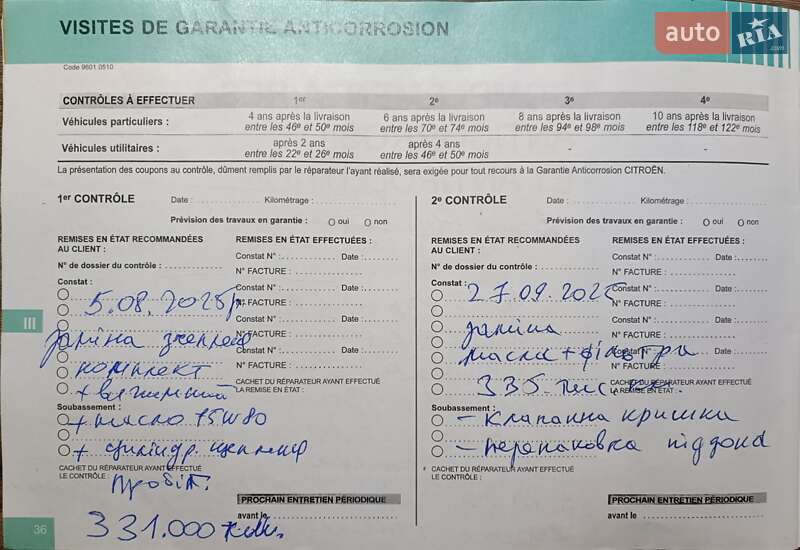 VISITES DE GARANTIE ANTICORROSION
auto RIA.com
Code 9601 0510
CONTRÔLES À EFFECTUER 1er 2e 3e 4e
Véhicules particuliers : 4 ans après la livraison entre les 46e et 50e mois 6 ans après la livraison entre les 70e et 74e mois 8 ans après la livraison entre les 94e et 98e mois 10 ans après la livraison entre les 118e et 122e mois
Véhicules utilitaires : après 2 ans entre les 22e et 26e mois après 4 ans entre les 46e et 50e mois - -
La présentation des coupons au contrôle, dûment remplis par le réparateur l'ayant réalisé, sera exigée pour tout recours à la Garantie Anticorrosion CITROËN.
1er CONTRÔLE Date : Kilométrage :
Prévision des travaux en garantie : oui non
REMISES EN ÉTAT RECOMMANDÉES AU CLIENT :
REMISES EN ÉTAT EFFECTUÉES :
Constat N° : Date :
N° de dossier du contrôle :
N° FACTURE :
Constat :
Constat N° : Date :
5.08.2025р.
N° FACTURE :
Constat N° : Date :
заміна зчеплення
N° FACTURE :
Constat N° : Date :
комплект
N° FACTURE :
+ вижимний
CACHET DU RÉPARATEUR AYANT EFFECTUÉ
LA REMISE EN ÉTAT :
Soubassement :
+ масло 75W80
+ циліндр. щеплен
CACHET DU RÉPARATEUR AYANT EFFECTUÉ
LE CONTRÔLE :
Пробіг.
331.000 км.
PROCHAIN ENTRETIEN PÉRIODIQUE
avant le
2e CONTRÔLE Date : Kilométrage :
Prévision des travaux en garantie : oui non
REMISES EN ÉTAT RECOMMANDÉES AU CLIENT :
REMISES EN ÉTAT EFFECTUÉES :
Constat N° : Date :
N° de dossier du contrôle :
N° FACTURE :
Constat :
Constat N° : Date :
27.09.2025
N° FACTURE :
Constat N° : Date :
заміна
N° FACTURE :
Constat N° : Date :
масла + фільтри
N° FACTURE :
335 тис
CACHET DU RÉPARATEUR AYANT EFFECTUÉ
LA REMISE EN ÉTAT :
Soubassement :
- Клапанна кришка
- перепаковка піддона
CACHET DU RÉPARATEUR AYANT EFFECTUÉ
LE CONTRÔLE :
PROCHAIN ENTRETIEN PÉRIODIQUE
avant le
III
36